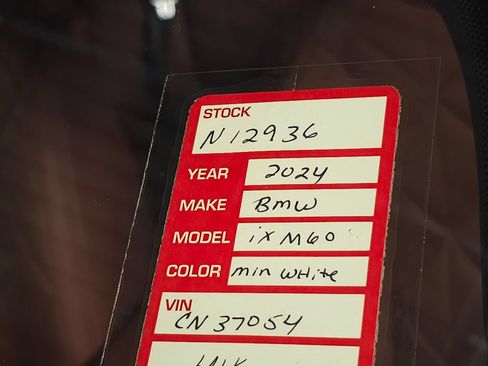 STOCK
N12936
YEAR 2024
MAKE BMW
MODEL ix M60
COLOR min white
VIN
CN37054